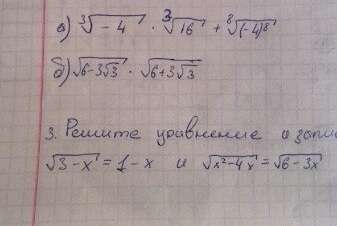 а) ∛-4 · ∛16 + ⁸√(-4)⁸
б) √6-3√3 · √6+3√3
3. Решите уравнение и запи
√3-x = 1-x и √x²-4x = √6-3x